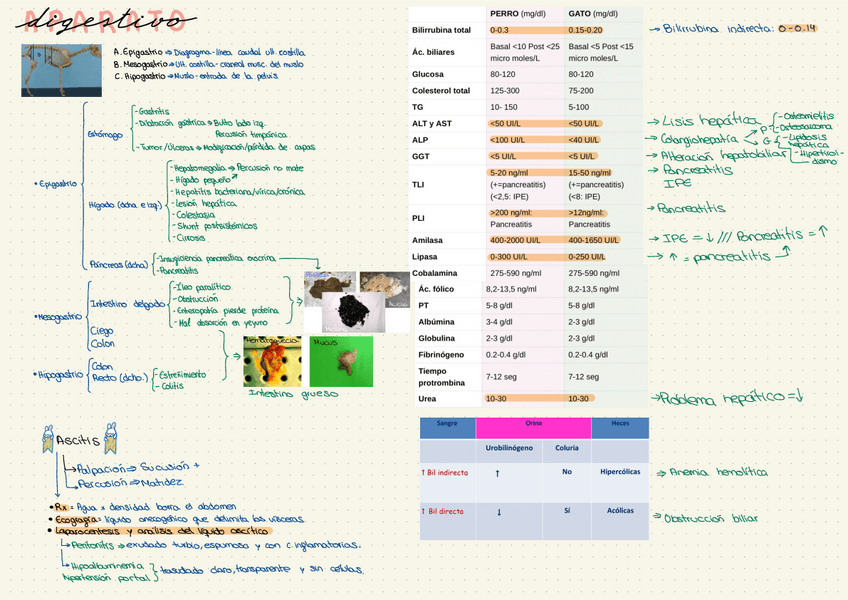 APARATO
digestivo
A. Epigastrio → Diagragma-línea caudal ult. costilla
B. Mesogastrio → Ult. costilla-craneal musc. del muslo
C. Hipogastrio → Muslo-entrada de la pelvis
• Epigastrio
Estómago
- Gastritis
- Dilatación gástrica → Bulto lado izq.
Percusión timpánica
- Tumor/Úlceras → Modificación/pérdida de capas
Hígado (dcha e izq)
- Hepatomegalia → Percusión no mate
- Hígado pequeño
- Hepatitis bacteriana/vírica/crónica
- Lesión hepática
- Colestasia
- Shunt postsistémicos
- Cirrosis
Páncreas (dcha)
- Insuficiencia pancreática exocrina
- Pancreatitis
• Mesogastrio
Intestino delgado
- Íleo paralítico
- Obstrucción
- Enteropatía pierde proteína
- Mal absorción en yeyuno
Ciego
Colon
• Hipogastrio
Colon
Recto (dcho.)
- Estreñimiento
- Colitis
Hematoquecia
Mucus
Intestino grueso
Ascitis
→ Palpación ⇒ Sucusión +
→ Percusión ⇒ Matidez
• Rx = Agua x densidad borra el abdomen
• Ecografía = líquido anecogénico que delimita las vísceras
• Laparocentesis y análisis del líquido ascítico
→ Peritonitis → exudado turbio, espumoso y con c. inflamatorias.
→ Hipoalbuminemia
hipertensión portal
trasudado claro, transparente y sin células.
PERRO (mg/dl) GATO (mg/dl)
Bilirrubina total 0-0.3 0.15-0.20 → Bilirrubina indirecta: 0-0.14
Ác. biliares Basal <10 Post <25 micro moles/L Basal <5 Post <15 micro moles/L
Glucosa 80-120 80-120
Colesterol total 125-300 75-200
TG 10- 150 5-100
ALT y AST <50 UI/L <50 UI/L → Lisis hepática
ALP <100 UI/L <40 UI/L → Colangiohepatía
P
- Osteomielitis
- Osteosarcoma
G
- Lipidosis hepática
- Hiperticoidismo
GGT <5 UI/L <5 UI/L → Alteración hepatobiliar
TLI 5-20 ng/ml (+=pancreatitis) (<2,5: IPE) 15-50 ng/ml (+=pancreatitis) (<8: IPE) → Pancreatitis
IPE
PLI >200 ng/ml: Pancreatitis >12ng/ml: Pancreatitis → Pancreatitis
Amilasa 400-2000 UI/L 400-1650 UI/L → IPE = ↓ /// Pancreatitis = ↑
Lipasa 0-300 UI/L 0-250 UI/L → ↑ = pancreatitis
Cobalamina 275-590 ng/ml 275-590 ng/ml
Ác. fólico 8,2-13,5 ng/ml 8,2-13,5 ng/ml
PT 5-8 g/dl 5-8 g/dl
Albúmina 3-4 g/dl 2-3 g/dl
Globulina 2-3 g/dl 2-3 g/dl
Fibrinógeno 0.2-0.4 g/dl 0.2-0.4 g/dl
Tiempo protrombina 7-12 seg 7-12 seg
Urea 10-30 10-30 → Problema hepático = ↓
Sangre Orina Heces
Urobilinógeno Coluria
↑ Bil indirecta ↑ No Hipercólicas ⇒ Anemia hemolítica
↑ Bil directa ↓ Sí Acólicas ⇒ Obstrucción biliar